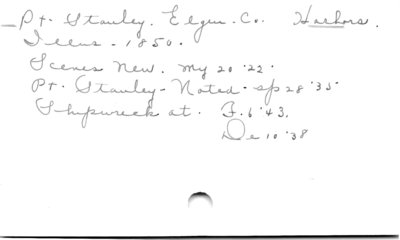 Pt. Stanley. Elgin. Co. Harbors.
Items - 1850.
Scenes New. My 20 '22.
Pt. Stanley - Noted. Sp 28 '35.
Shipwreck at. F. 6 '43.
De 10 '38